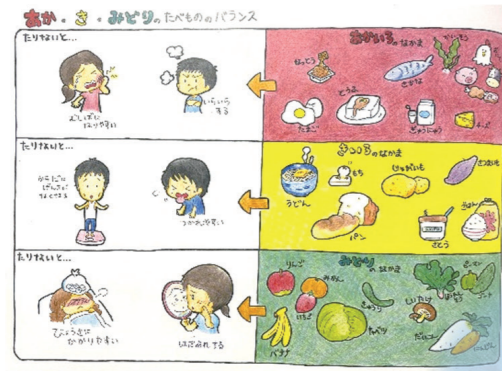 あか・き・みどりのたべもののバランス
たりないと…
むしばに
なりやすい
いらいら
する
あかいろのなかま
なっとう
とうふ
さかな
たまご
ぎゅうにゅう
たりないと…
からだに
つかれやすい
きいろのなかま
うどん
もち
じゃがいも
さつまいも
パン
さとう
ごはん
たりないと…
びょうきに
かかりやすい
はだあれする
みどりのなかま
りんご
みかん
いちご
バナナ
きゅうり
キャベツ
しいたけ
だいこん
にんじん